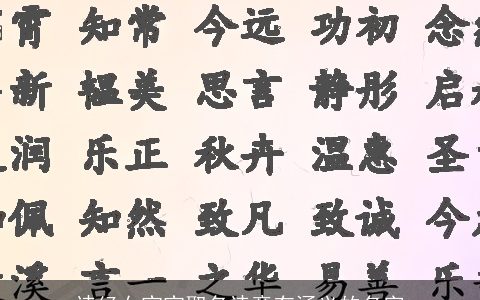 霄 知常 今远 功初 念
新 韫美 思言 静彤 启
润 乐正 秋卉 温惠 圣
佩 知然 致凡 致诚 今
溪 言一 之华 易善 乐